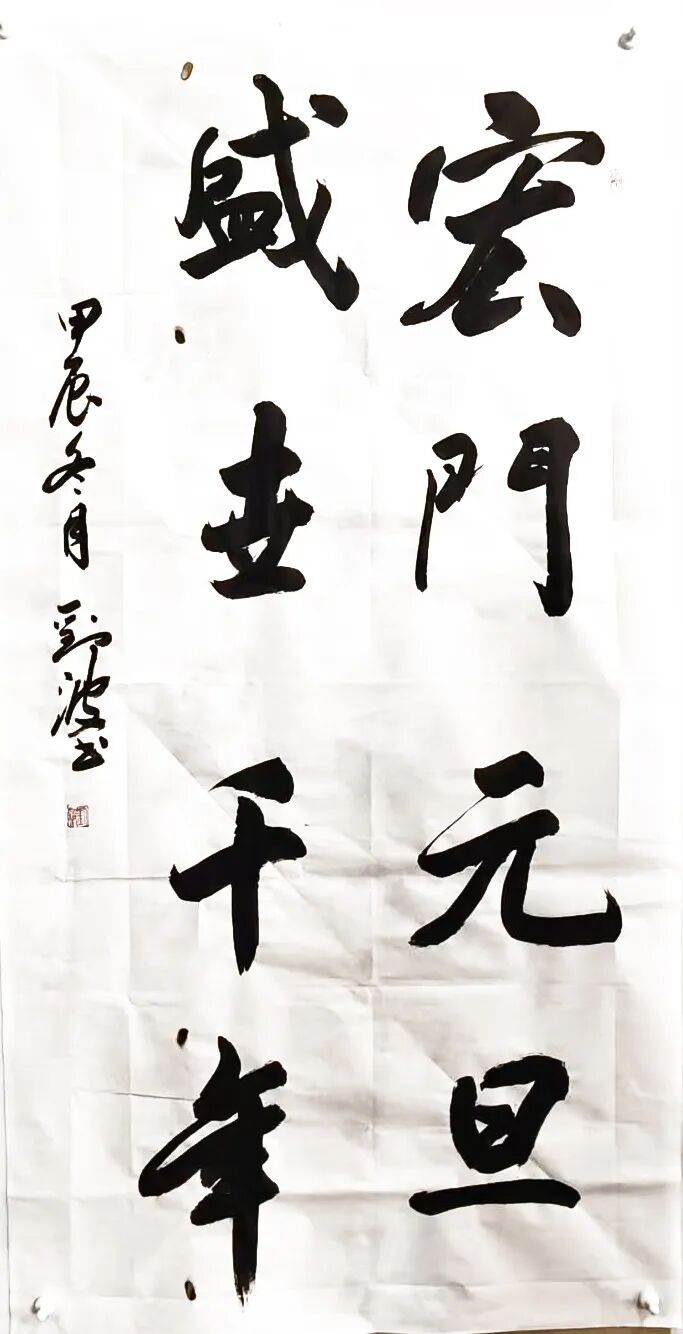 宏門元旦
盛世千年
甲辰冬月 劉波书